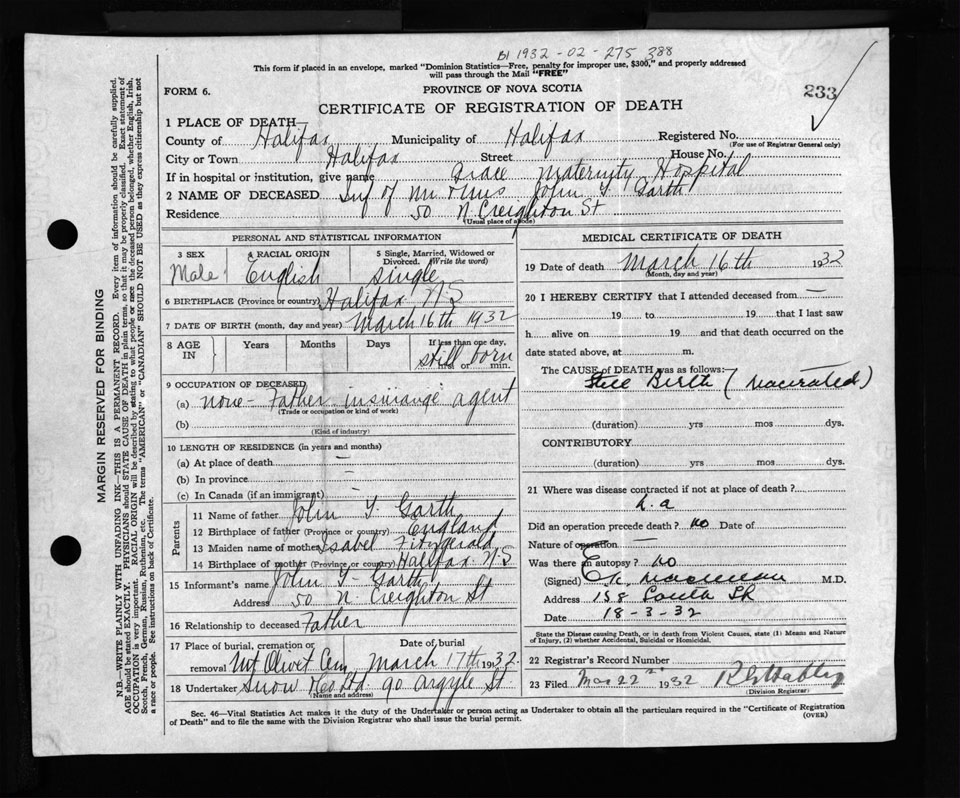 B1 1932-02-275 388
This form if placed in an envelope, marked "Dominion Statistics—Free, penalty for improper use, $300," and properly addressed
will pass through the Mail "FREE"
FORM 6.
PROVINCE OF NOVA SCOTIA
233
CERTIFICATE OF REGISTRATION OF DEATH
1 PLACE OF DEATH
County of Halifax Municipality of Halifax Registered No.
(For use of Registrar General only)
City or Town Halifax Street House No.
If in hospital or institution, give name Grace Maternity Hospital
2 NAME OF DECEASED Inf of Mr & Mrs John Y Garth
Residence 50 N. Creighton St
(Usual place of abode)
PERSONAL AND STATISTICAL INFORMATION
3 SEX
Male
4 RACIAL ORIGIN
English
5 Single, Married, Widowed or
Divorced. (Write the word)
single
6 BIRTHPLACE (Province or country) Halifax N.S
7 DATE OF BIRTH (month, day and year) March 16th 1932
8 AGE IN
Years
Months
Days
If less than one day,
still born
hrs. or min.
9 OCCUPATION OF DECEASED
(a) none - Father insurance agent
(Trade or occupation or kind of work)
(b)
(Kind of industry)
10 LENGTH OF RESIDENCE (in years and months)
(a) At place of death —
(b) In province —
(c) In Canada (if an immigrant) —
Parents
11 Name of father John Y. Garth
12 Birthplace of father (Province or country) England
13 Maiden name of mother Isabel Fitzgerald
14 Birthplace of mother (Province or country) Halifax N.S
15 Informant's name John Y Garth
Address 50 N. Creighton St
16 Relationship to deceased Father
17 Place of burial, cremation or Date of burial
removal Mt Olivet Cem March 17th 1932
18 Undertaker Snow & Co Ltd. 90 Argyle St.
(Name and address)
MEDICAL CERTIFICATE OF DEATH
19 Date of death March 16th 1932
(Month, day and year)
20 I HEREBY CERTIFY that I attended deceased from —
19 to 19 that I last saw
h alive on 19 and that death occurred on the
date stated above, at m.
The CAUSE of DEATH was as follows:
Still Birth (Macerated)
(duration) yrs mos dys.
CONTRIBUTORY
(duration) yrs mos dys.
21 Where was disease contracted if not at place of death?
n.a
Did an operation precede death? no Date of
Nature of operation —
Was there an autopsy? no
(Signed) M.D.
Address 158 South St
Date 18-3-32
State the Disease causing Death, or in death from Violent Causes, state (1) Means and Nature
of Injury, (2) whether Accidental, Suicidal or Homicidal.
22 Registrar's Record Number
23 Filed Mar 22 1932
(Division Registrar)
Sec. 46—Vital Statistics Act makes it the duty of the Undertaker or person acting as Undertaker to obtain all the particulars required in the "Certificate of Registration
of Death" and to file the same with the Division Registrar who shall issue the burial permit.
(OVER)
MARGIN RESERVED FOR BINDING
N.B.—WRITE PLAINLY WITH UNFADING INK—THIS IS A PERMANENT RECORD. Every item of information should be carefully supplied.
AGE should be stated EXACTLY. PHYSICIANS should STATE CAUSE OF DEATH in plain terms, so that it may be properly classified. Exact statement of
OCCUPATION is very important. RACIAL ORIGIN will be described by stating to what people or race the deceased person belonged, whether English, Irish,
Scotch, French, German, Russian, Ruthenian, etc. The terms "AMERICAN" or "CANADIAN" SHOULD NOT BE USED as they express citizenship but not
a race or people. See instructions on back of Certificate.